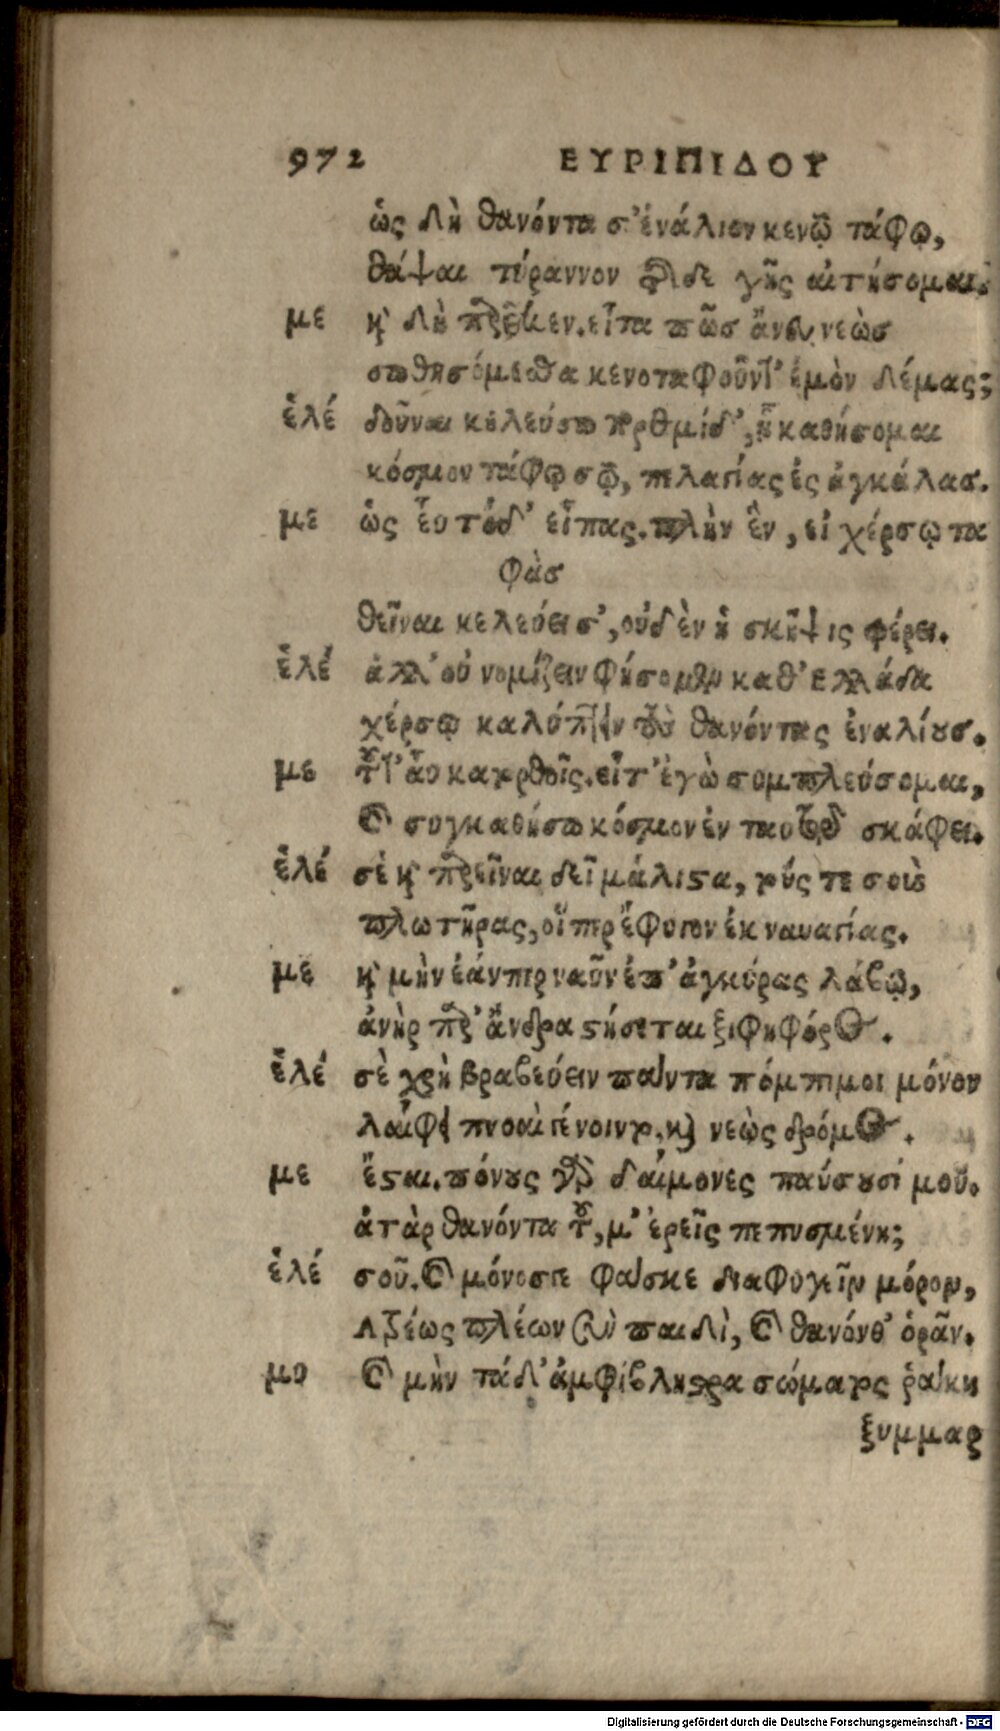 972 ΕΥΡΙΠΙΔΟΥ
ὡς δὴ θανόντα σ' ἐνάλιον κενῷ τάφῳ,
θάψαι τύραννον τῆσδε γῆς αἰτήσομαι.
με καὶ δὴ παρεῖκεν. εἶτα πῶσ ἄνευ νεὼσ
σωθησόμεσθα κενοταφοῦντ' ἐμὸν δέμας;
ἑλέ δοῦναι κελεύσω πορθμίδ', ᾗ καθήσομαι
κόσμον τάφῳ σῷ, πελαγίας ἐς ἀγκάλασ.
με ὡς εὖ τόδ' εἶπας. πλὴν ἓν, εἰ χέρσῳ τα
φὰσ
θεῖναι κελεύει σ', οὐδὲν ἡ σκῆψις φέρει.
ἑλέ ἀλλ' οὐ νομίζειν φήσομεν καθ' Ἑλλάδα
χέρσῳ καλύπτειν τοὺς θανόντας ἐναλίουσ.
με τοῦτ' αὖ κατορθοῖς. εἶτ' ἐγὼ συμπλεύσομαι,
καὶ συγκαθήσω κόσμον ἐν ταυτῷ σκάφει.
ἑλέ σὲ καὶ παρεῖναι δεῖ μάλιστα, τούς τε σοὺς
πλωτῆρας, οἵπερ ἔφυγον ἐκ ναυαγίας.
με καὶ μὴν ἐάνπερ ναῦν ἐπ' ἀγκύρας λάβω,
ἀνὴρ παρ' ἄνδρα στήσεται ξιφηφόρος.
ἑλέ σὲ χρὴ βραβεύειν πάντα πόμπιμοι μόνον
λαίφει πνοαὶ γένοιντο, καὶ νεὼς δρόμος.
με ἔσται. πόνους γὰρ δαίμονες παύσουσί μου.
ἀτὰρ θανόντα τοῦ, μ' ἐρεῖς πεπυσμένη;
ἑλέ σοῦ. καὶ μόνοσ γε φάσκε διαφυγεῖν μόρον,
Ἀτρέως πλέων σὺν παιδὶ, καὶ θανόνθ' ὁρᾶν.
με καὶ μὴν τάδ' ἀμφίβληστρα σώματος ῥάκη
ξυμμαρ
Digitalisierung gefördert durch die Deutsche Forschungsgemeinschaft - DFG